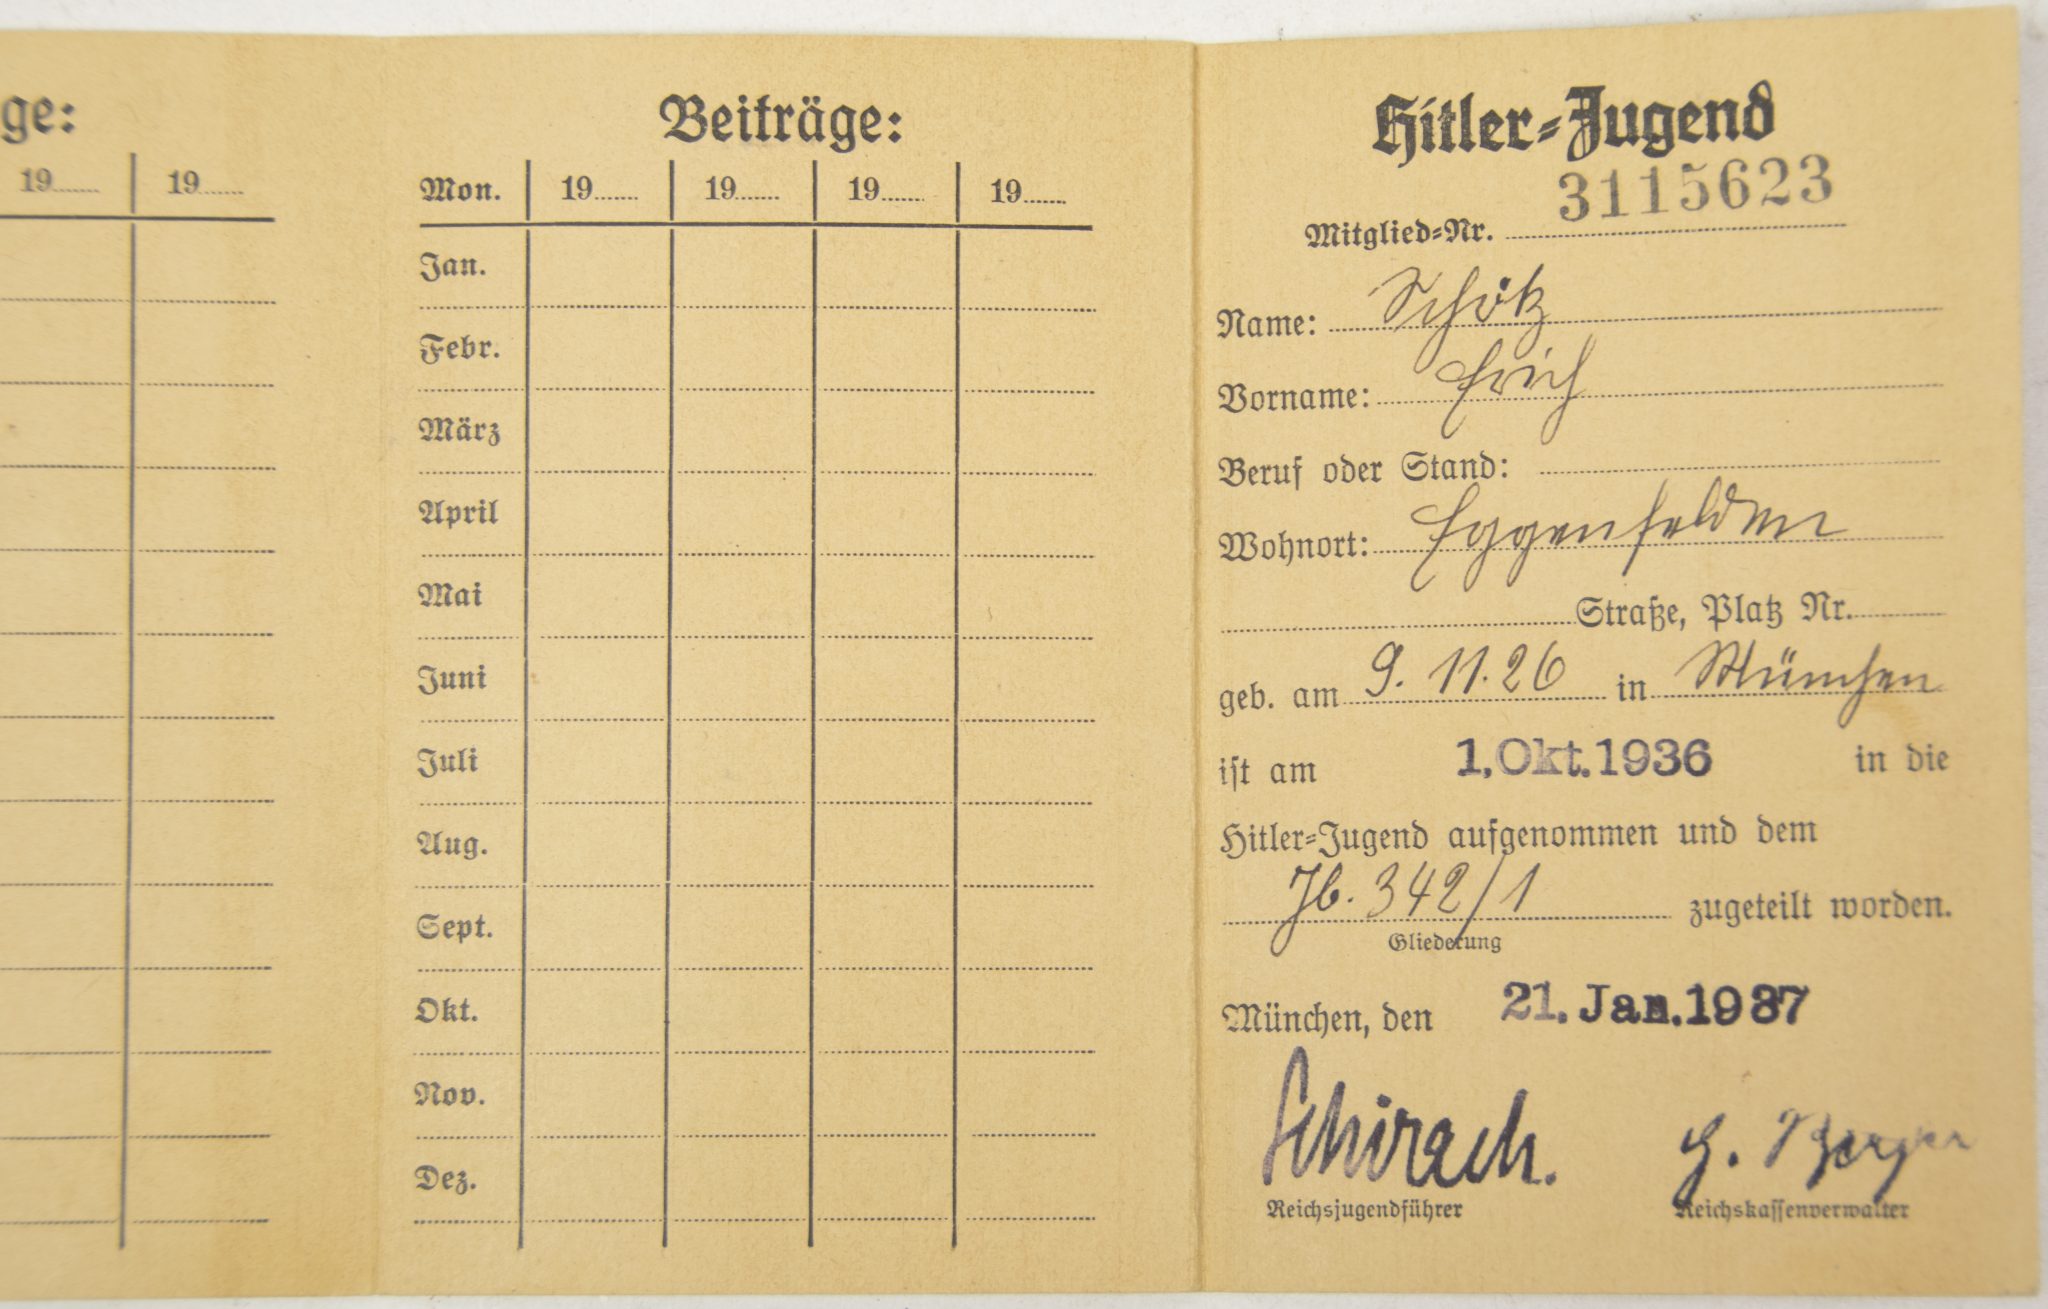 ge:
19 19
Beiträge:
Mon. 19 19 19 19
Jan.
Febr.
März
April
Mai
Juni
Juli
Aug.
Sept.
Okt.
Nov.
Dez.
Hitler=Jugend
Mitglied=Nr. 3115623
Name: Schötz
Vorname: Erich
Beruf oder Stand:
Wohnort: Eggenfelden
Straße, Platz Nr.
geb. am 9. 11. 26 in München
ist am 1. Okt. 1936 in die
Hitler=Jugend aufgenommen und dem
Jb. 342/1 zugeteilt worden.
Gliederung
München, den 21. Jan. 1937
Schirach. G. Berger
Reichsjugendführer Reichskassenverwalter